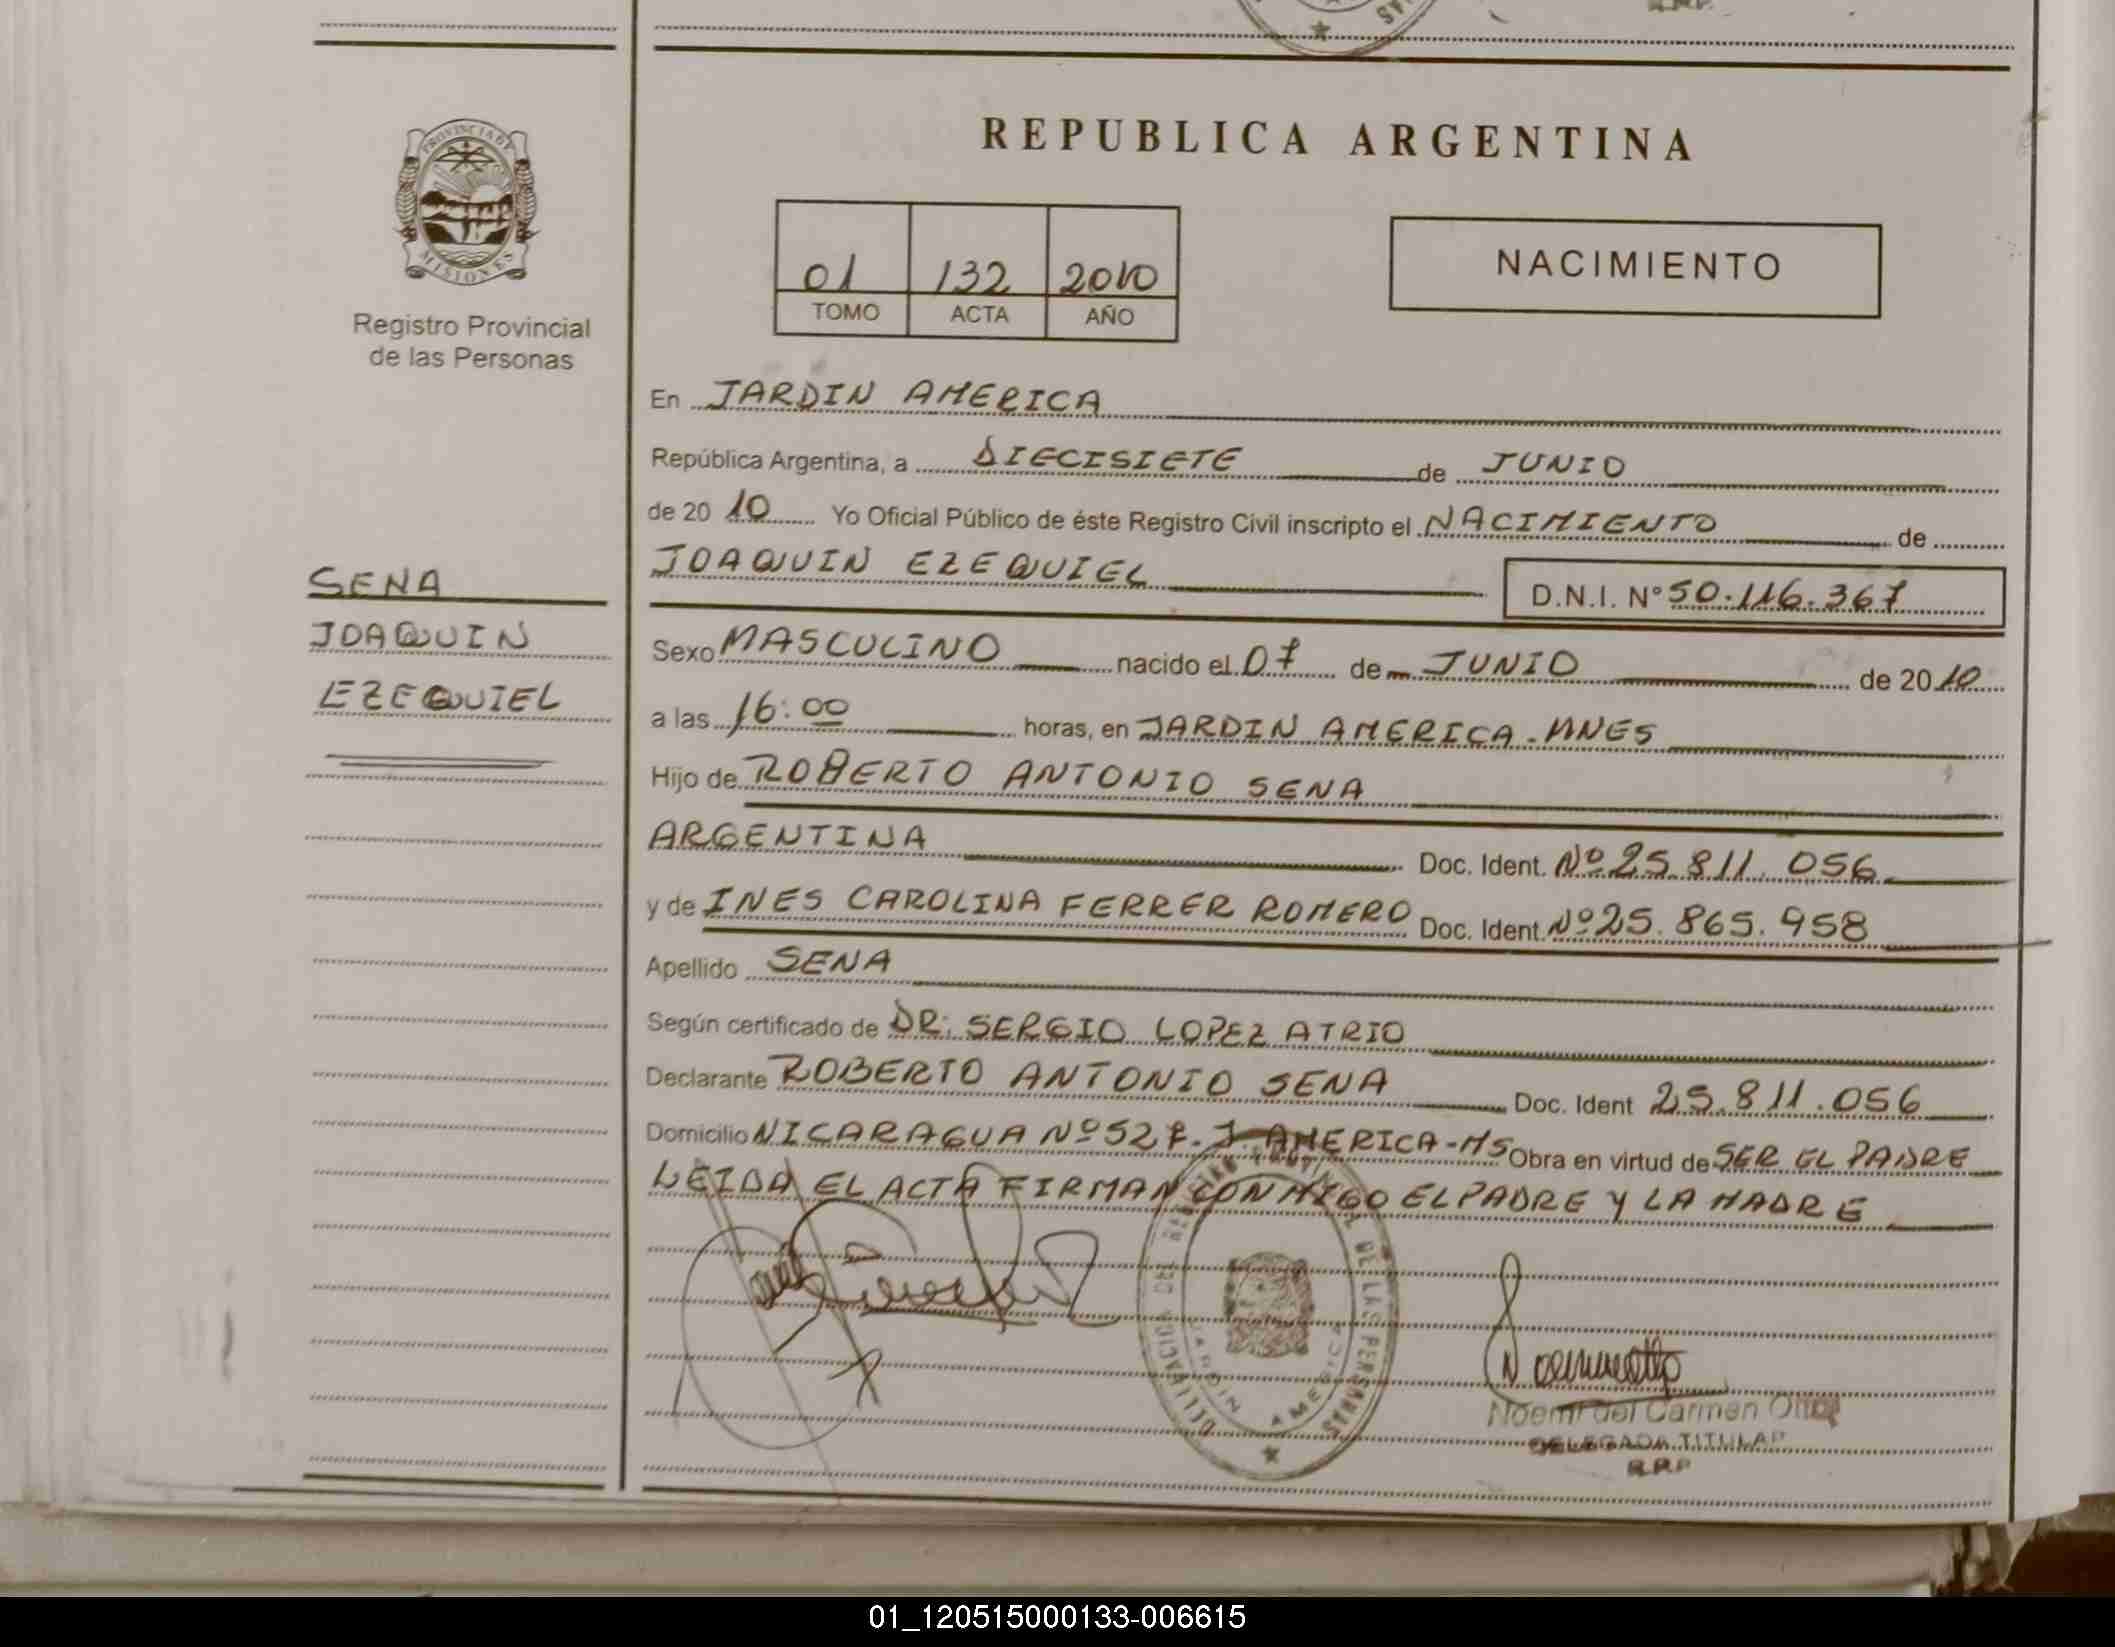 PROVINCIA DE
MISIONES
Registro Provincial
de las Personas
REPUBLICA ARGENTINA
01 132 2010
TOMO ACTA AÑO
NACIMIENTO
En JARDIN AMERICA
República Argentina, a DIECISIETE de JUNIO
de 20 10 Yo Oficial Público de éste Registro Civil inscripto el NACIMIENTO de
JOAQUIN EZEQUIEL D.N.I. N° 50.116.367
SENA
JOAQUIN
EZEQUIEL
Sexo MASCULINO nacido el 07 de JUNIO de 20 10
a las 16:00 horas, en JARDIN AMERICA - MNES
Hijo de ROBERTO ANTONIO SENA
ARGENTINA Doc. Ident. Nº 25.811.056
y de INES CAROLINA FERRER ROMERO Doc. Ident. Nº 25.865.958
Apellido SENA
Según certificado de DR. SERGIO LOPEZ ATRIO
Declarante ROBERTO ANTONIO SENA Doc. Ident 25.811.056
Domicilio NICARAGUA Nº 527. J. AMERICA-MS Obra en virtud de SER EL PADRE
LEIDA EL ACTA FIRMAN CONMIGO EL PADRE Y LA MADRE
DE LAS PERSONAS
JARDIN AMERICA
Noemi del Carmen
DELEGADA TITULAR
R.R.P
01_120515000133-006615